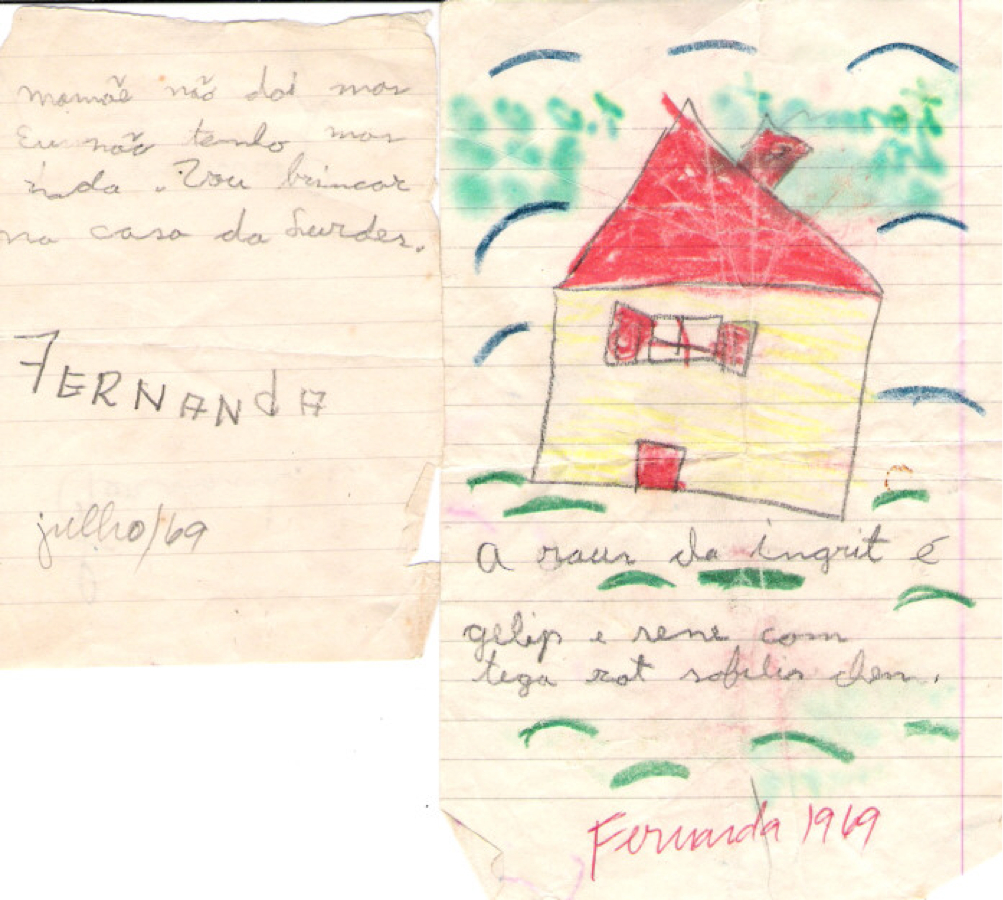 mamãe não doi mas
Eu não tenho mas
nada. Vou brincar
na casa da Lurdes.
FERNANdA
julho/69
a raur da ingrit é
gelip e rene com
tega rot sobilis chem.
Fernanda 1969